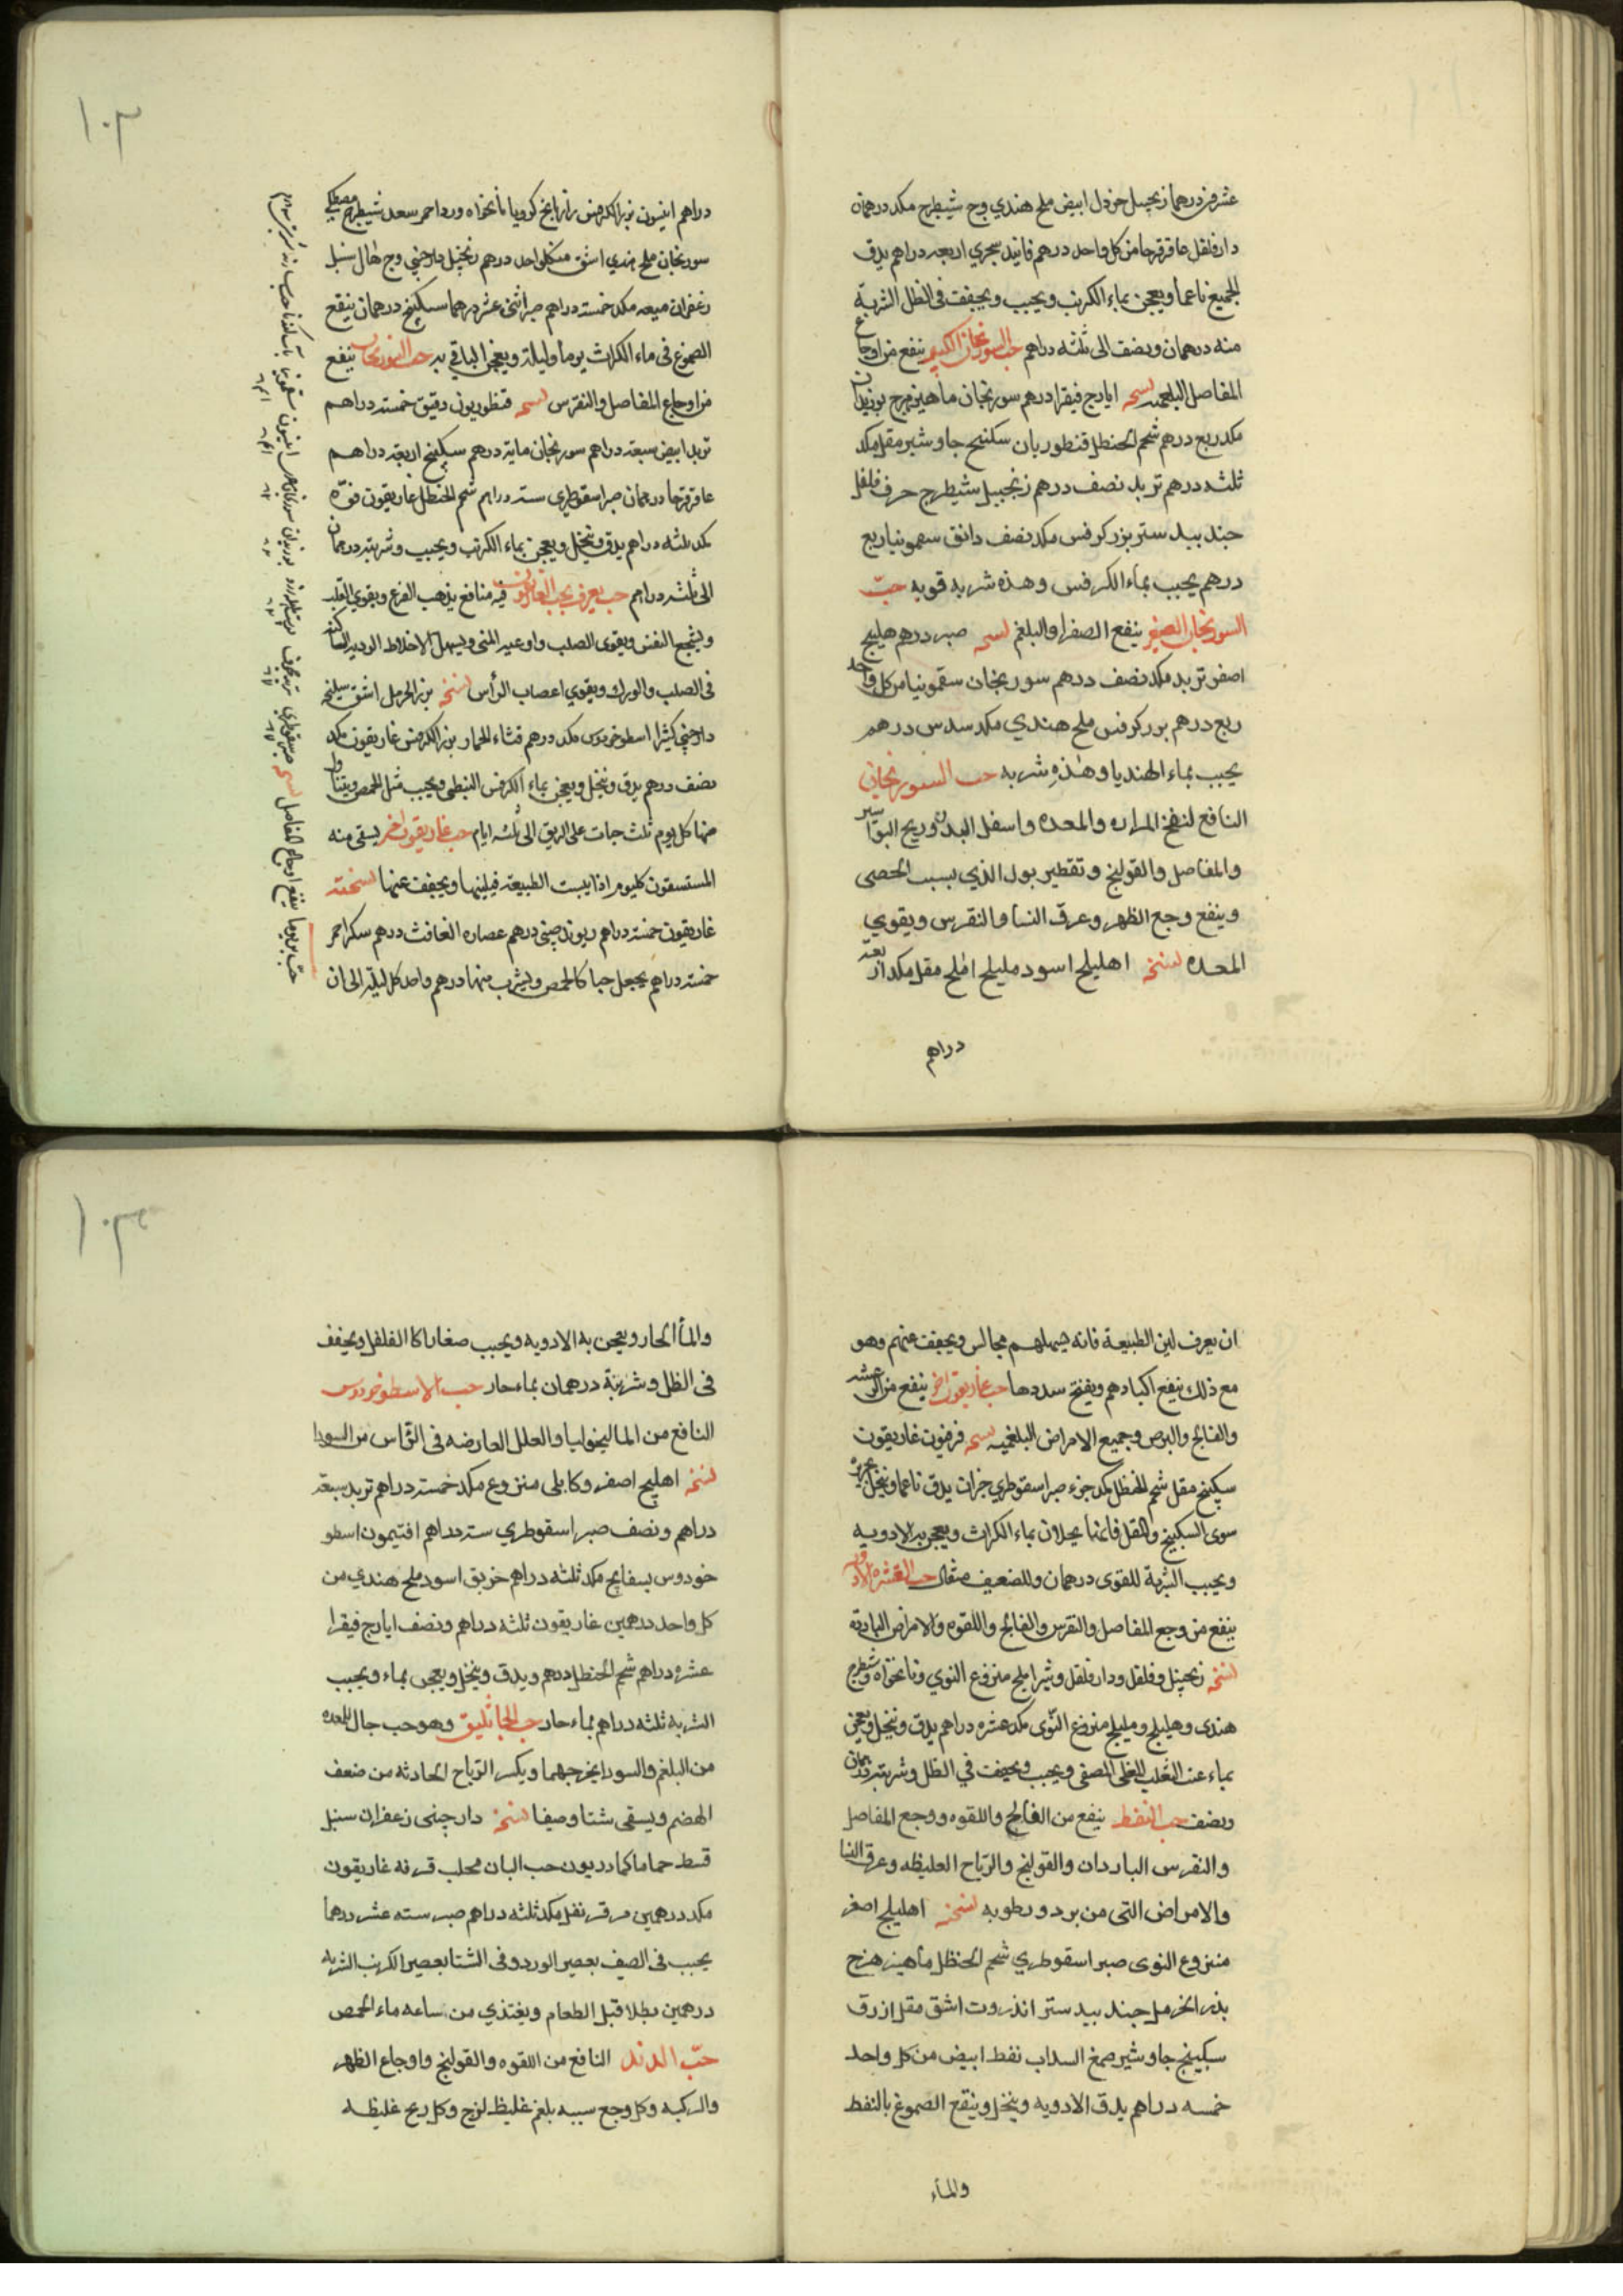 عشرون درهما زنجبيل خردل ابيض ملح هندي وج شيطرج مكد درهمان
دارفلفل عاقرقرحا من كل واحد درهم فانيد سجري اربعه دراهم يدق
الجميع ناعما ويعجن بماء الكرنب ويحبب ويجفف في الظل الشربة
منه درهمان ونصف الى ثلثه دراهم حب السورنجان الكبير ينفع من اوجاع
المفاصل البلغميه نسخه ايارج فيقرا درهم سورنجان ماهيزهرج بوزيدان
مكد ربع درهم شحم الحنطل قنطوريان سكبينج جاوشير مقل مكد
ثلثه درهم تربد نصف درهم زنجبيل شيطرج حرف فلفل
جندبيدستر بزر كرفس مكد نصف دانق سقمونيا ربع
درهم يحبب بماء الكرفس وهذه شربه قويه حبّ
السورنجان الصغير ينفع الصفرا والبلغم نسخه صبر درهم هليلج
اصفر تربد مكد نصف درهم سورنجان سقمونيا من كل واحد
ربع درهم بزر كرفس ملح هندي مكد سدس درهم
يحبب بماء الهنديا وهذه شربه حب السورنجاني
النافع لنفخ المراره والمعده واسفل البدن وريح البواسير
والمفاصل والقولنج وتقطير بول الذي بسبب الحصى
وينفع وجع الظهر وعرق النسا والنقرس ويقوي
المعده نسخه اهليلج اسود مليلج املج مقل مكد اربعة
دراهم
١٠٢
دراهم انيسون بزر الكرفس رازيانج كرويا نانخواه ورد احمر سعد شيطرج مصطكي
سورنجان ملح هندي اشق من كلواحد درهم زنجبيل دارجني وج هال سنبل
زعفران ميعه مكد خمسة دراهم صبر اثنى عشر درهما سكبينج درهمان ينقع
الصموغ في ماء الكراث يوما وليلة ويعجن الباقي به حب السورنجان ينفع
من اوجاع المفاصل والنقرس نسخه قنطوريون دقيق خمسة دراهم
تربد ابيض سبعة دراهم سورنجان ماية درهم سكبينج اربعة دراهم
عاقرقرحا درهمان صبر اسقوطري ستة دراهم شحم الحنظل غاريقون فوّه
مكد ثلثه دراهم يدق وينخل ويعجن بماء الكرنب ويحبب وشربته درهمان
الى ثلثه دراهم حب يعرف بحب الغاريقون فيه منافع يذهب الفزع ويقوي القلب
ويشجع النفس ويقوى الصلب واوعيه المنى ويسهل الاخلاط الرديه الساكنه
فى الصلب والورك ويقوي اعصاب الرأس نسخه بزر الحرمل اشق سليخه
دارجني كثيرا اسطوخودوس مكد درهم قثاء الحمار بزر الكرفس غاريقون مكد
نصف درهم يدق وينخل ويعجن بماء الكرفس النبطي ويحبب مثل الحمص ويتناول
منها كل يوم ثلث حبات على الريق الى ثلثه ايام حب غاريقون اخر يسقى منه
المستسقون كل يوم اذا يبست الطبيعة فيلينها ويجفف عنها نسخته
غاريقون خمسة دراهم ريوند صيني درهم عصاره الغافث درهم سكر احمر
خمسة دراهم يجعل حبا كالحمص ويشرب منها درهم واحد كل ليلة الى ان
حب بن يوما ينفع اوجاع المفاصل نسخه صبر سقوطري
ان يعرف لين الطبيعة فانه يسهلهم مجالس ويجفف عنهم وهو
مع ذلك ينفع اكبادهم ويفتح سددها حب غاريقون اخر ينفع من الرعشه
والفالج والبرص وجميع الامراض البلغميه نسخه فرفيون غاريقون
سكبينج مقل شحم الحنظل مكد جزء صبر اسقوطري جزان يدق ناعما وينخل بحريره
سوى السكبينج والمقل فانهما يحلان بماء الكراث ويعجن به الادويه
ويحبب الشربة للقوى درهمان وللضعيف مثقال حب العشره الادويه
ينفع من وجع المفاصل والنقرس والفالج واللقوه والامراض البارده
نسخه زنجبيل وفلفل ودارفلفل وشير املج منزوع النوي ونانخواه وشيطرج
هندى وهليلج ومليلج منزوع النّوى مكد عشره دراهم يدق وينخل ويعجن
بماء عنب الثعلب المغلى المصفى ويحبب ويجفف في الظل وشربته درهمان
ونصف حب النفط ينفع من الفالج واللقوه ووجع المفاصل
والنقرس الباردان والقولنج والرياح الغليظه وعرق النسا
والامراض التى من برد ورطوبه نسخه اهليلج اصفر
منزوع النوى صبر اسقوطري شحم الحنظل ماهيزهرج
بذر الحرمل جندبيدستر انذروت اشق مقل ازرق
سكبينج جاوشير صمغ السداب نفط ابيض من كل واحد
خمسه دراهم يدق الادويه وينخل وينقع الصموغ بالنفط
والماء
١٠٣
والماء الحار ويعجن به الادويه ويحبب صغارا كالفلفل ويجفف
فى الظل وشربتة درهمان بماء حار حب الاسطوخودوس
النافع من الماليخوليا والعلل العارضه فى الرّاس من السودا
نسخه اهليلج اصفر وكابلى منزوع مكد خمسة دراهم تربد سبعة
دراهم ونصف صبر اسقوطري ستة دراهم افتيمون اسطو
خودوس بسفايج مكد ثلثه دراهم خربق اسود ملح هندي من
كل واحد درهمين غاريقون ثلثه دراهم ونصف ايارج فيقرا
عشره دراهم شحم الحنطل درهم ويدق وينخل ويعجن بماء ويحبب
الشربه ثلثه دراهم بماء حار حب الجاثليق وهو حب جال للمعده
من البلغم والسودا يخرجهما ويكسر الرّياح الحادثه من ضعف
الهضم ويسقى شتا وصيفا نسخه دارجينى زعفران سنبل
قسط حماما كمادريون حب البان محلب قرفه غاريقون
مكد درهمين مر قرنفل مكد ثلثه دراهم صبر سته عشر درهما
يحبب فى الصيف بعصير الورد وفى الشتا بعصير الكرنب الشربه
درهمين بطلا قبل الطعام ويغتذي من ساعه ماء الحمص
حبّ الدند النافع من اللقوه والقولنج واوجاع الظهر
والركبه وكل وجع سببه بلغم غليظ لزج وكل ريح غليظه